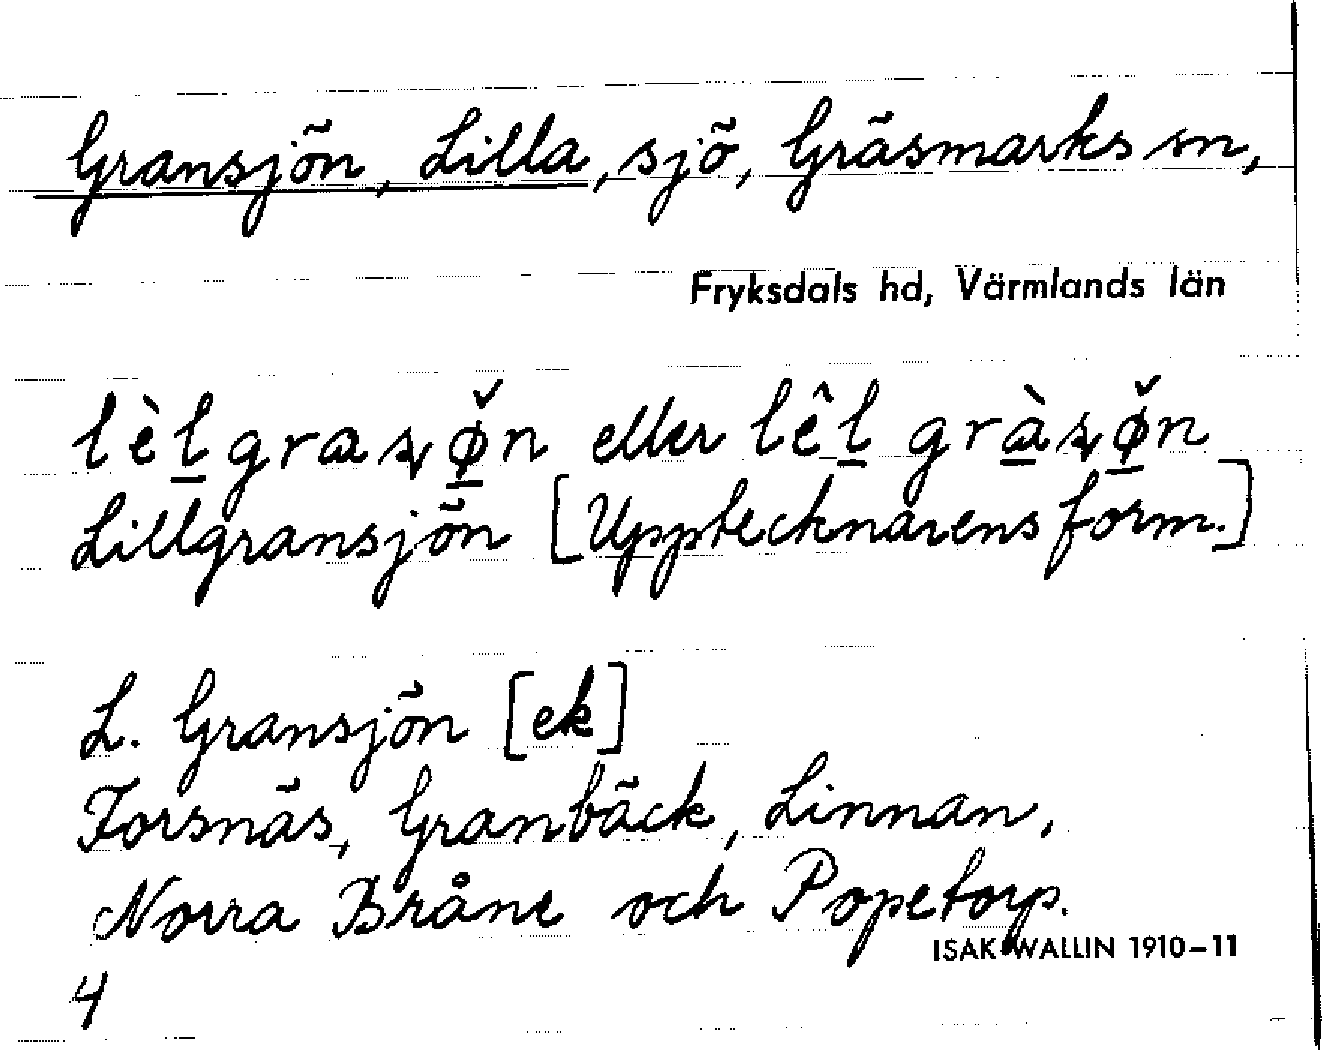 Gransjön, Lilla, sjö, Gräsmarks sn,
Fryksdals hd, Värmlands län
eller
Lillgransjön [Upptecknarens form.]
L. Gransjön [ek]
Forsnäs, Granbäck, Linnan,
Norra Bråne och Popetorp.
ISAK WALLIN 1910-11
4